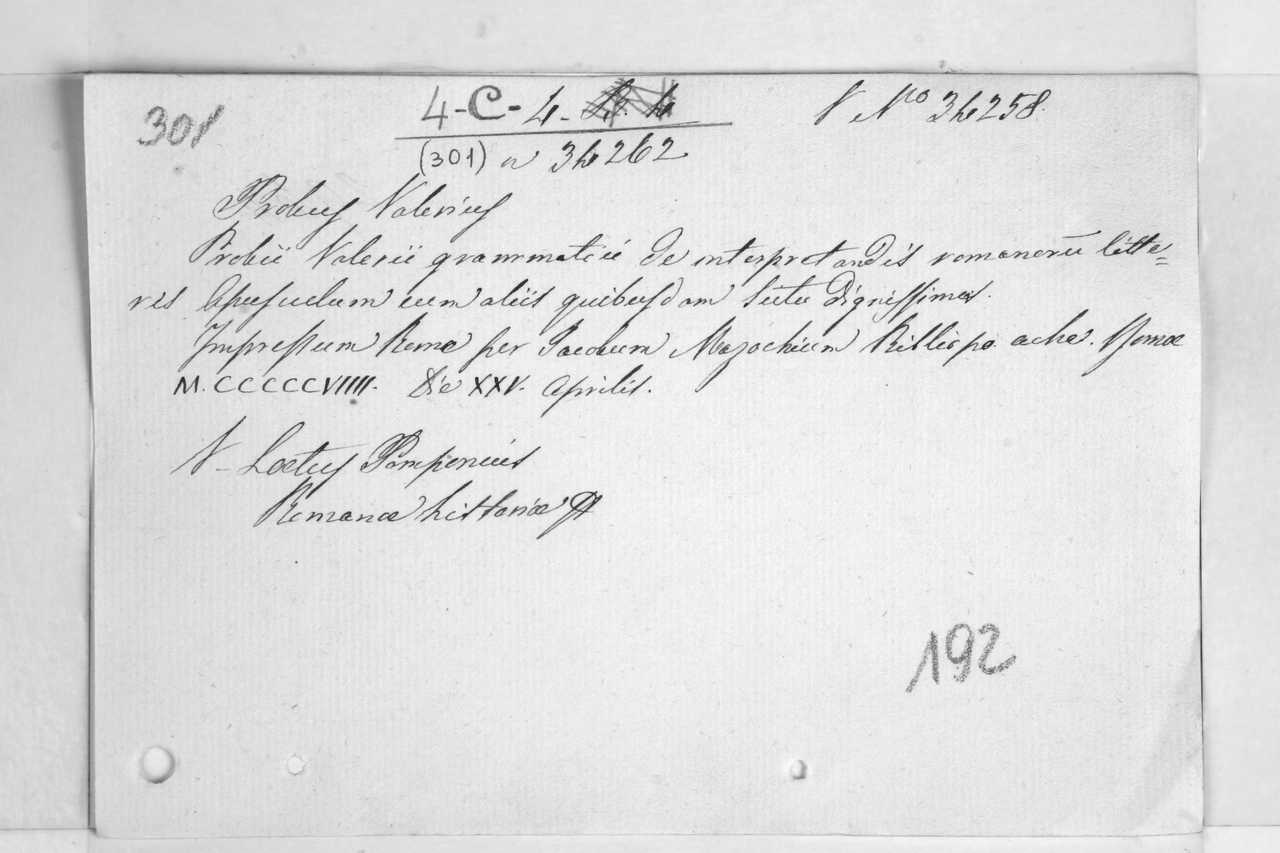 301
4-C-4-
V Nº 34258.
(301) a 34262
Probus Valerius
Probii Valerii grammatici de interpretandis romanorū litte=
ris Opusculum cum aliis quibusdam scitu dignissimis.
Impressum Rome per Jacobum Mazochium Bibliopo. ache. Romæ
M.CCCCCVIIII. Die XXV. Aprilis.
V- Lœtus Pomponius
Romanæ historiæ
192